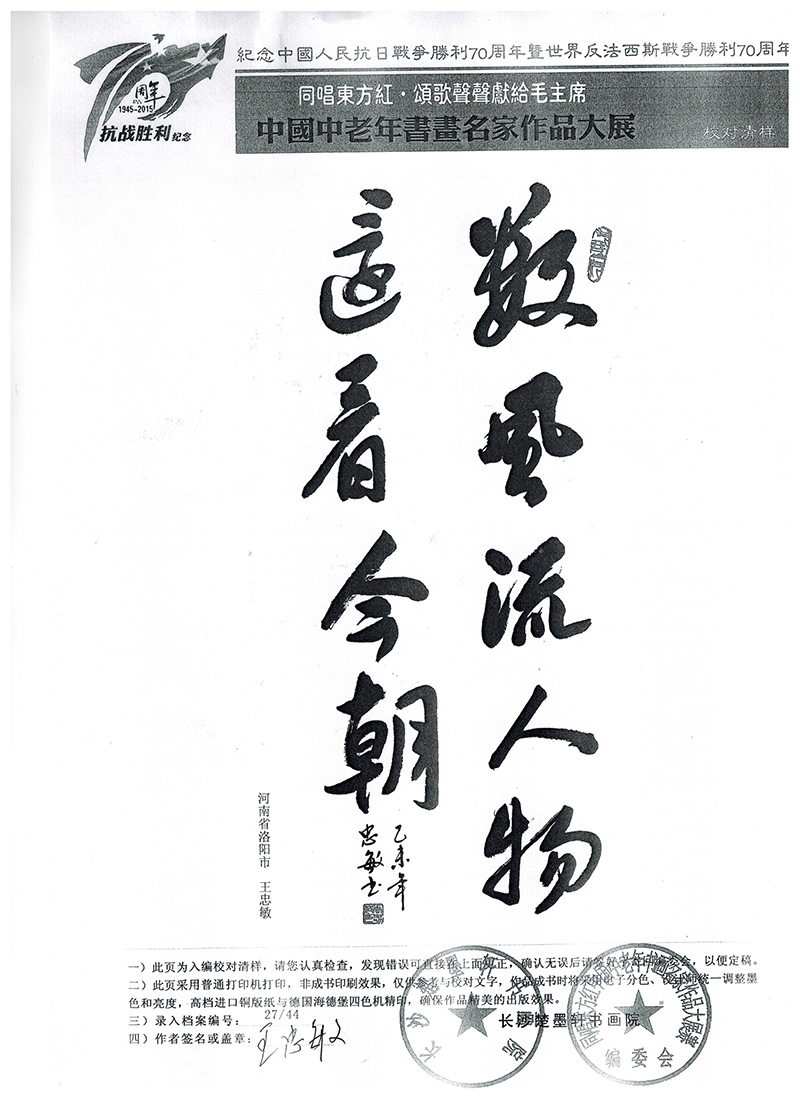 紀念中國人民抗日戰爭勝利70周年暨世界反法西斯戰爭勝利70周年
周年
1945-2015
抗战胜利纪念
同唱東方紅·頌歌聲聲獻給毛主席
中國中老年書畫名家作品大展
校对清样
數風流人物
還看今朝
乙未年
忠敏书
河南省洛阳市 王忠敏
一）此页为入编校对清样，请您认真检查，发现错误可直接在上面更正，确认无误后请签好字寄回编委会，以便定稿。
二）此页采用普通打印机打印，非成书印刷效果，仅供参考与校对文字，作品成书时将采用电子分色、设计师统一调整墨
色和亮度，高档进口铜版纸与德国海德堡四色机精印，确保作品精美的出版效果。
三）录入档案编号： 27/44
长沙楚墨轩书画院
四）作者签名或盖章：王忠敏
长沙楚墨轩书画院
编委会